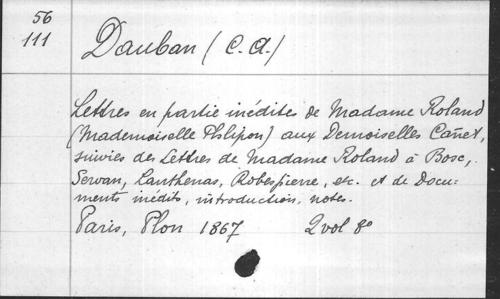 56
111
Dauban (C. A.)
Lettres en partie inédites de Madame Roland
(Mademoiselle Phlipon) aux Demoiselles Cañet,
suivies des Lettres de Madame Roland à Bosc,
Servan, Lanthenas, Robespierre, etc. et de Docu-
ments inédits, introduction, notes.
Paris, Plon 1867 2 vol 8°